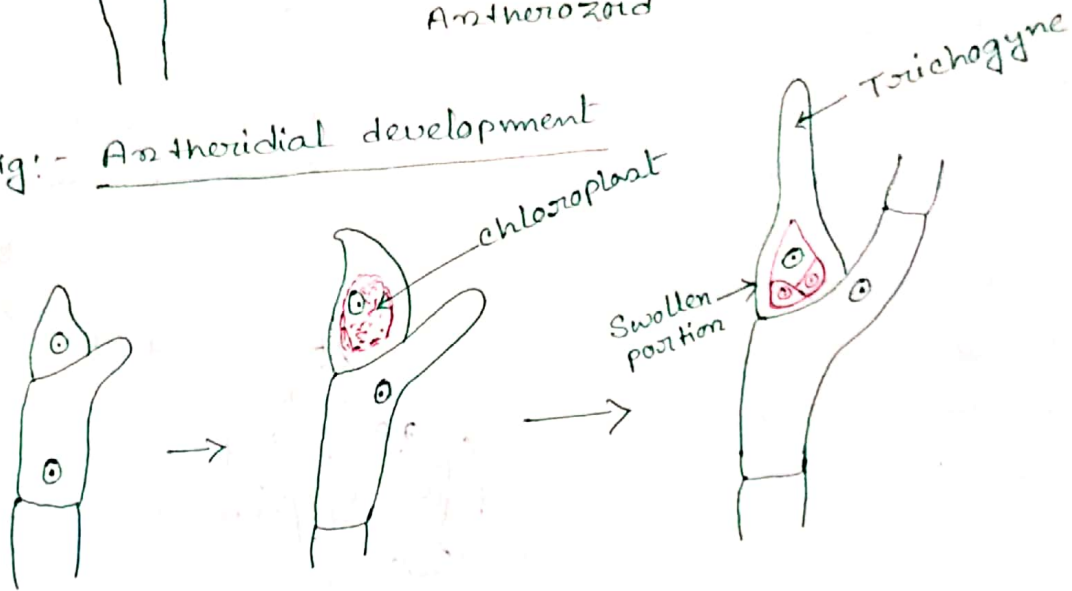 Antherozoid
ig:- Antheridial development
Trichogyne
chloroplast
Swollen
portion